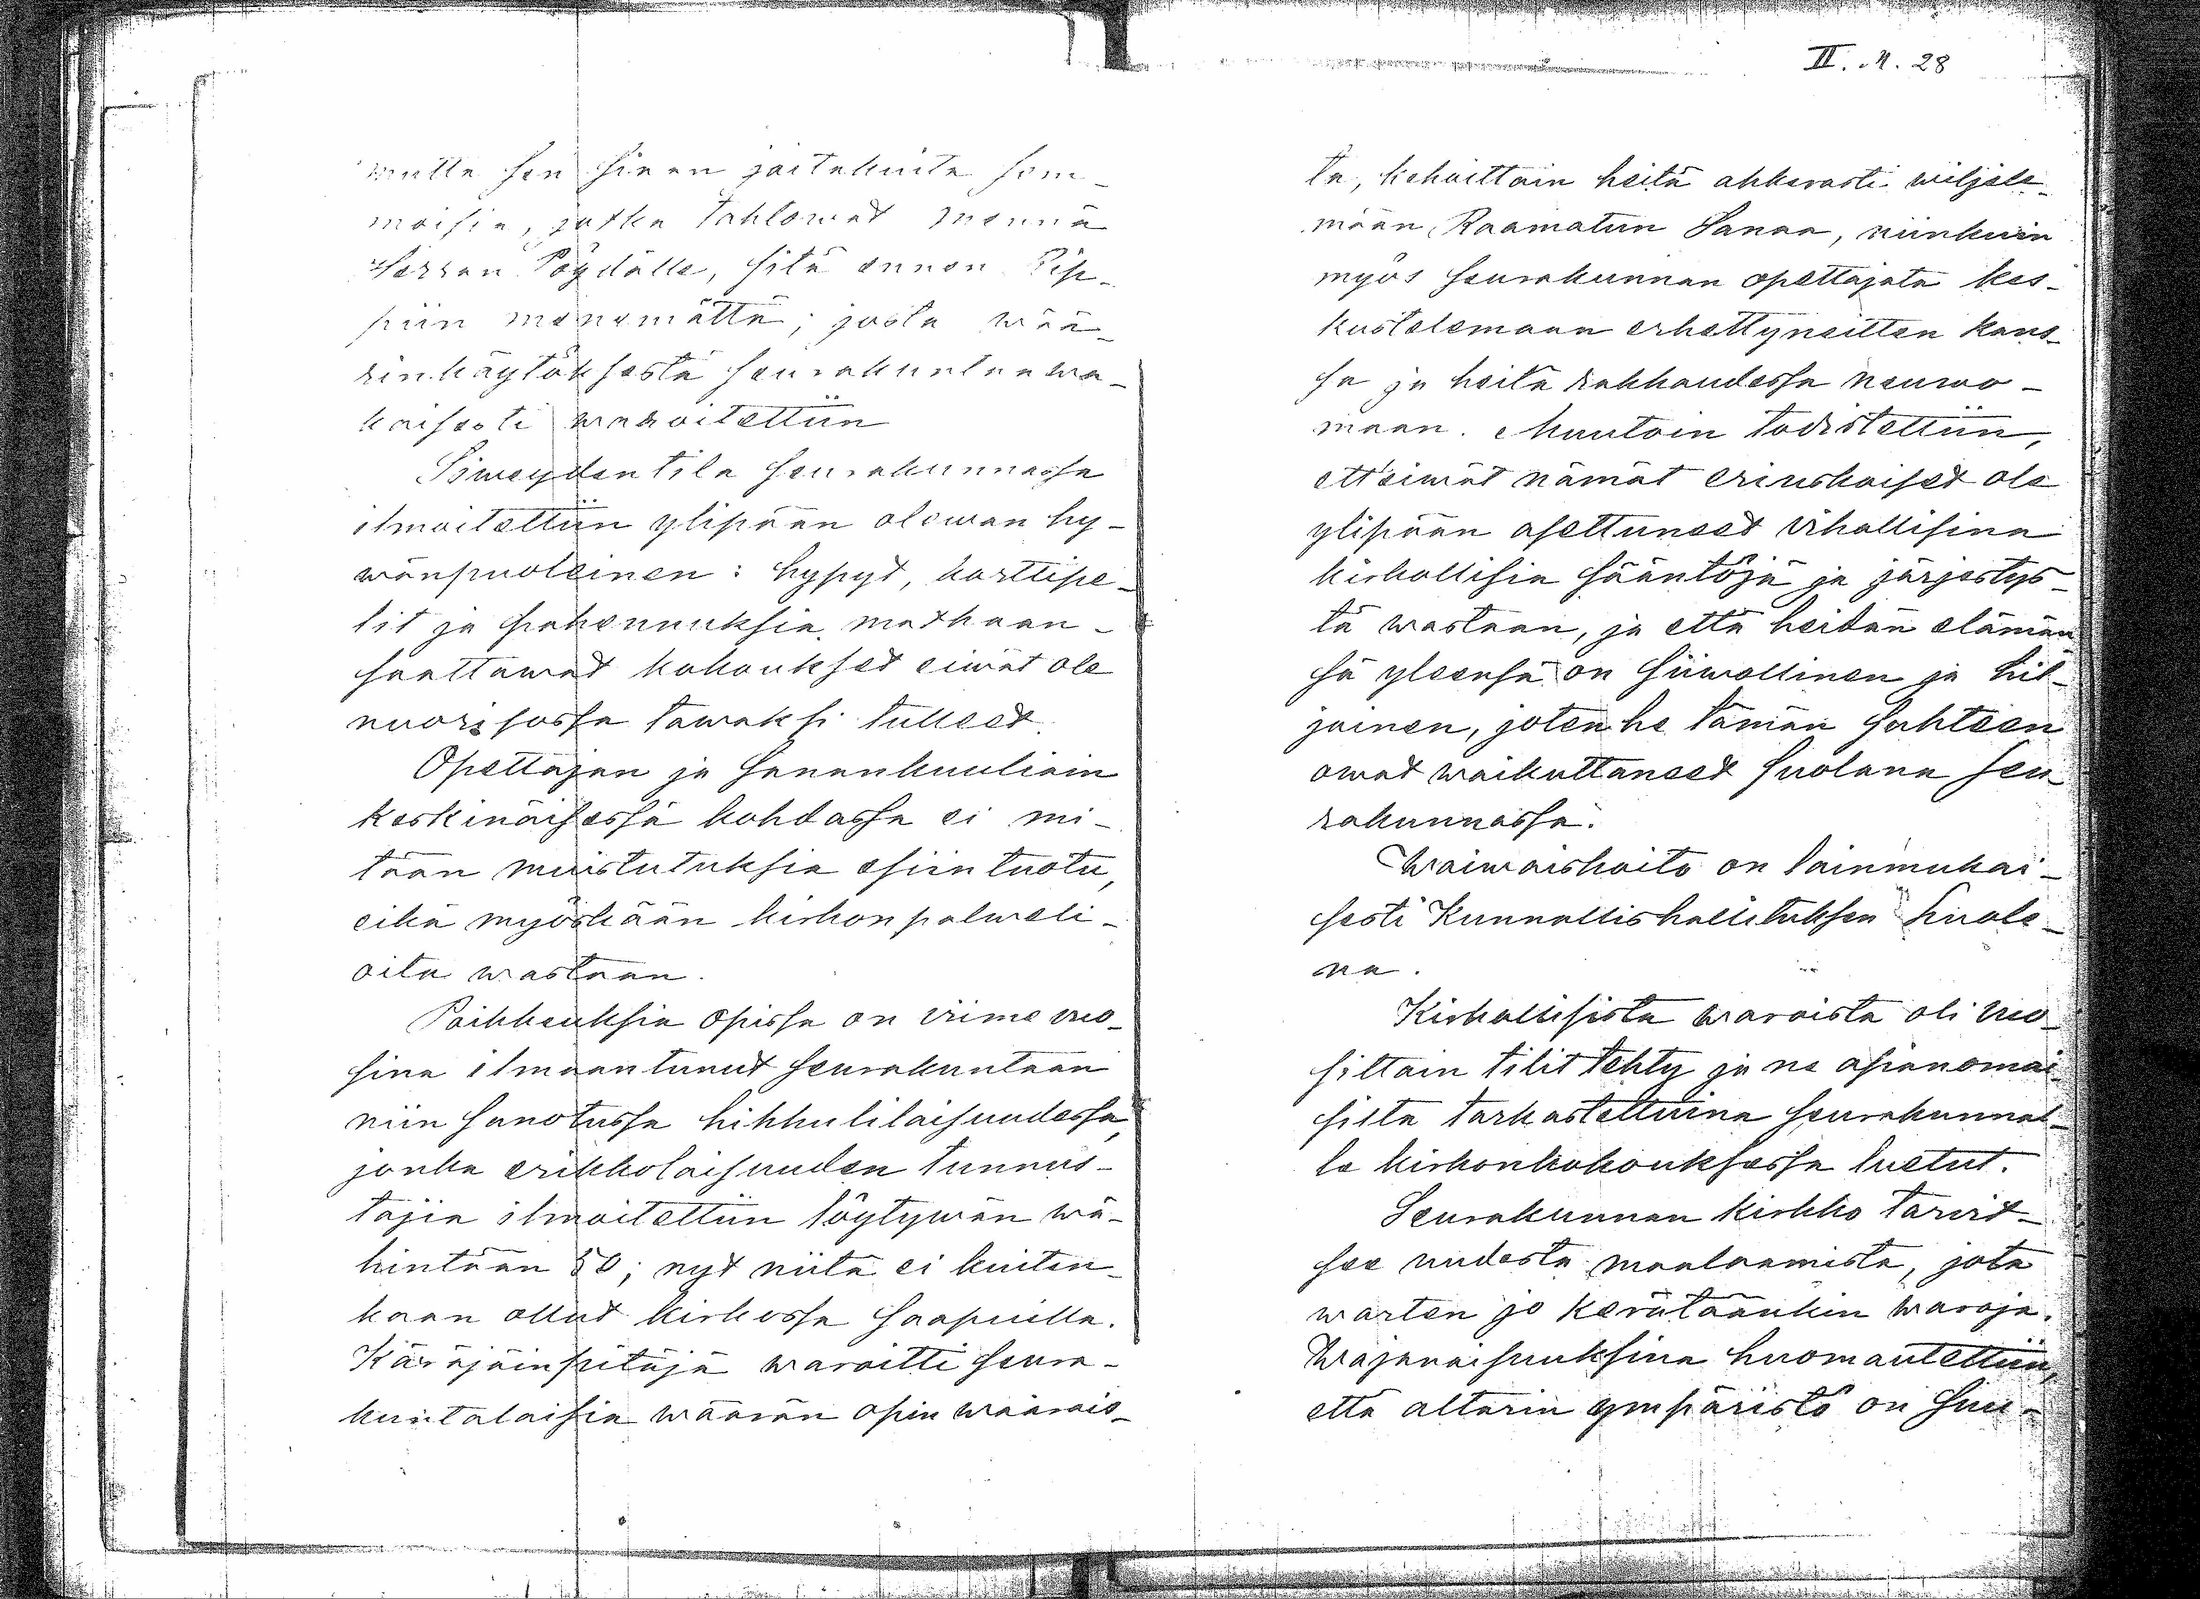 mutta sen sivan jaetakuita sem-
moisia, jotka tahtowat mennä
Herran Pöydälle, sitä ennen Rip-
piin menemättä; josta wää-
rinkäytöksestä seurakuntaa wa-
kaisesti waroitettiin
Siweyden tila seurakunnassa
ilmoitettiin ylipään olewan hy-
wänpuoleinen: hypyt, korttipe-
lit ja pahennuksia matkaan-
saattawat kokoukset eiwät ole
nuorisossa tawaksi tulleet.
Opettajan ja sanankuuliain
keskinäisessä kohdassa ei mi-
tään muistutuksia esiin tuotu,
eikä myöskään kirkon palweli-
oita wastaan.
Poikkeuksia opissa on viime vuo-
sina ilmaantunut seurakuntaan
niin sanotussa hihhulilaisuudessa,
jonka erikkolaisuuden tunnus-
tajia ilmoitettiin löytywän wä-
hintään 50; nyt niitä ei kuiten-
kaan ollut kirkossa saapuilla.
Käräjäinpitäjä waroitti seura-
kuntalaisia wäärän opin waarois-
II. A. 28
ta, kehoittain heitä ahkerasti wiljele-
mään Raamatun Sanaa, niinkuin
myös seurakunnan opettajata kes-
kustelemaan erhettyneitten kans-
sa ja heitä rakkaudessa neuwo-
maan. Muutoin todistettiin,
ett'eiwät nämät eriuskoiset ole
ylipään asettuneet vihollisina
kirkollisia sääntöjä ja järjestys-
tä wastaan, ja että heidän elämän
sä yleensä on siiwollinen ja hil-
jainen, joten he tämän suhteen
owat waikuttaneet suolana seu-
rakunnassa.
Waiwaishoito on lainmukai-
sesti Kunnallishallituksen huole-
na.
Kirkollisista waroista oli vuo-
sittain tilit tehty ja ne asianomai-
silta tarkastettuina seurakunnal-
le kirkonkokouksessa luetut.
Seurakunnan kirkko tarvit-
see uudesta maalaamista, jota
warten jo kerätäänkin waroja.
Wajanaisuuksina huomautettiin,
että altarin ympäristö on suu-